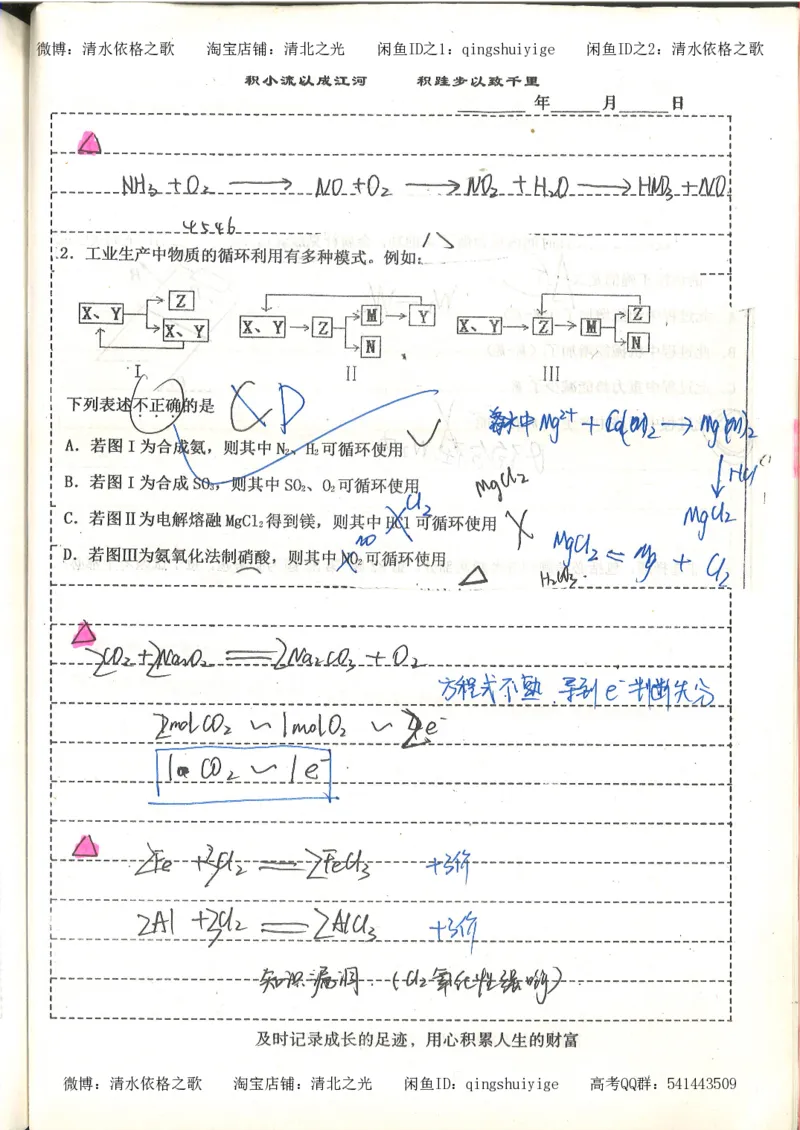 微博：清水依格之歌 淘宝店铺：清北之光 闲鱼ID之1：qingshuiyige 闲鱼ID之2：清水依格之歌
积小流以成江河 积跬步以致千里
年 月 日
NH₃ + O₂ ⟶ NO + O₂ ⟶ NO₂ + H₂O ⟶ HNO₃ + NO
4546
2．工业生产中物质的循环利用有多种模式。例如：
X、Y Z X、Y
X、Y Z M Y N
X、Y Z M Z N
Ⅰ Ⅱ Ⅲ
下列表述不正确的是 C D
海水中Mg²⁺ + Ca(OH)₂ → Mg(OH)₂
A．若图Ⅰ为合成氨，则其中 N₂、H₂可循环使用
↓HCl
B．若图Ⅰ为合成 SO₃，则其中 SO₂、O₂可循环使用
MgCl₂
MgCl₂
C．若图Ⅱ为电解熔融 MgCl₂得到镁，则其中 HCl 可循环使用
Cl₂
MgCl₂ = Mg + Cl₂
D．若图Ⅲ为氨氧化法制硝酸，则其中 NO₂可循环使用
NO
2CO₂ + 2Na₂O₂ = 2Na₂CO₃ + O₂
方程式不熟，导到e⁻判断失分
2molCO₂ ~ 1molO₂ ~ 2e⁻
CO₂ ~ 1e⁻
2Fe + 3Cl₂ = 2FeCl₃ +3价
2Al + 3Cl₂ = 2AlCl₃ +3价
知识漏洞 （Cl₂氧化性强哟）
及时记录成长的足迹，用心积累人生的财富
微博：清水依格之歌 淘宝店铺：清北之光 闲鱼ID：qingshuiyige 高考QQ群：541443509